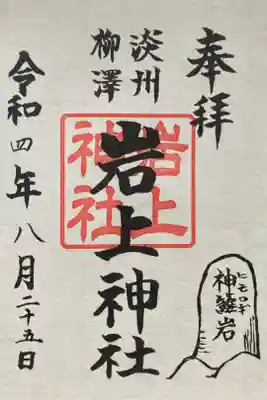 奉拝
淡州
柳澤
岩上神社
岩上
神社
令和四年八月二十五日
ヒモロギ
神籬岩